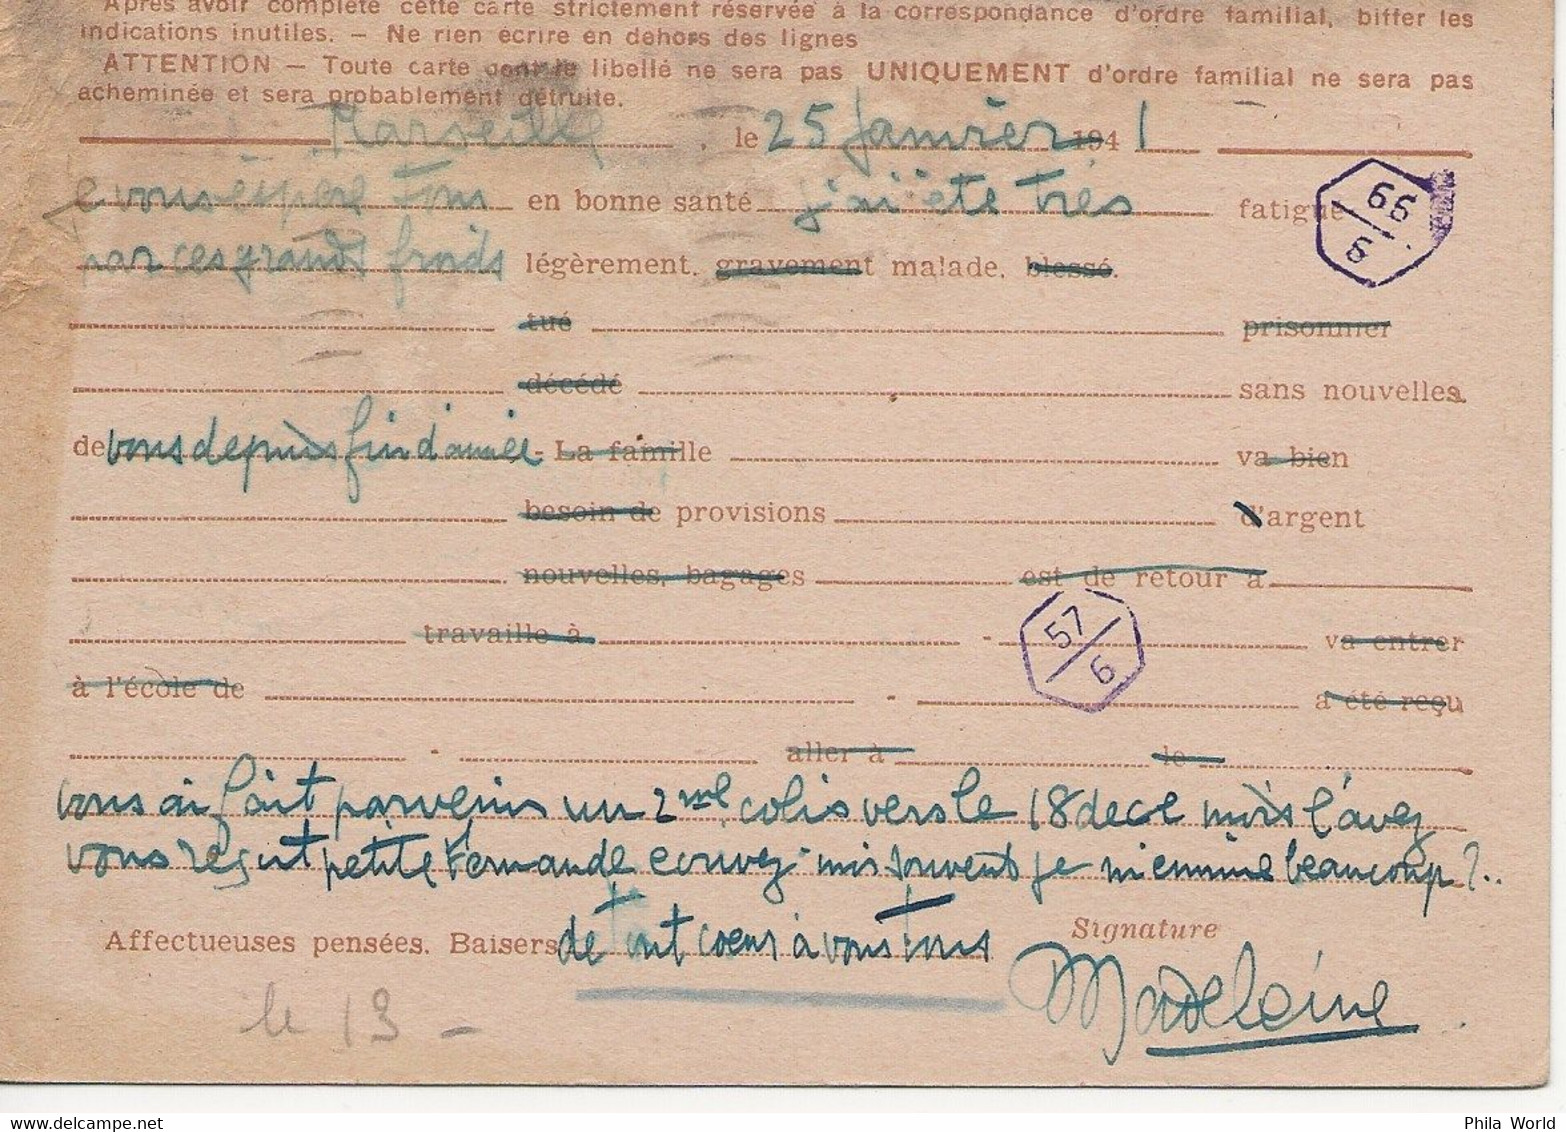 Après avoir complété cette carte strictement réservée à la correspondance d'ordre familial, biffer les
indications inutiles. — Ne rien écrire en dehors des lignes
ATTENTION — Toute carte dont le libellé ne sera pas UNIQUEMENT d'ordre familial ne sera pas
acheminée et sera probablement détruite.
Marseille, le 25 Janvier 1941
Je vous espère tous en bonne santé j'ai été très fatigué
par ces grands froids légèrement, gravement malade, blessé.
tué prisonnier
décédé sans nouvelles
de vous depuis fin d'année - La famille va bien
besoin de provisions d'argent
nouvelles, bagages est de retour à
travaille à - va entrer
à l'école de - a été reçu
- aller à le
vous ai fait parvenir un 2me colis vers le 18 dece mois l'avez
vous reçu et petite Fernande ecrivez-moi souvent je m'ennuie beaucoup?..
Affectueuses pensées. Baisers de tout coeur à vous tous Signature
Madeleine
le 13 -
66/6
57/6
Phila World